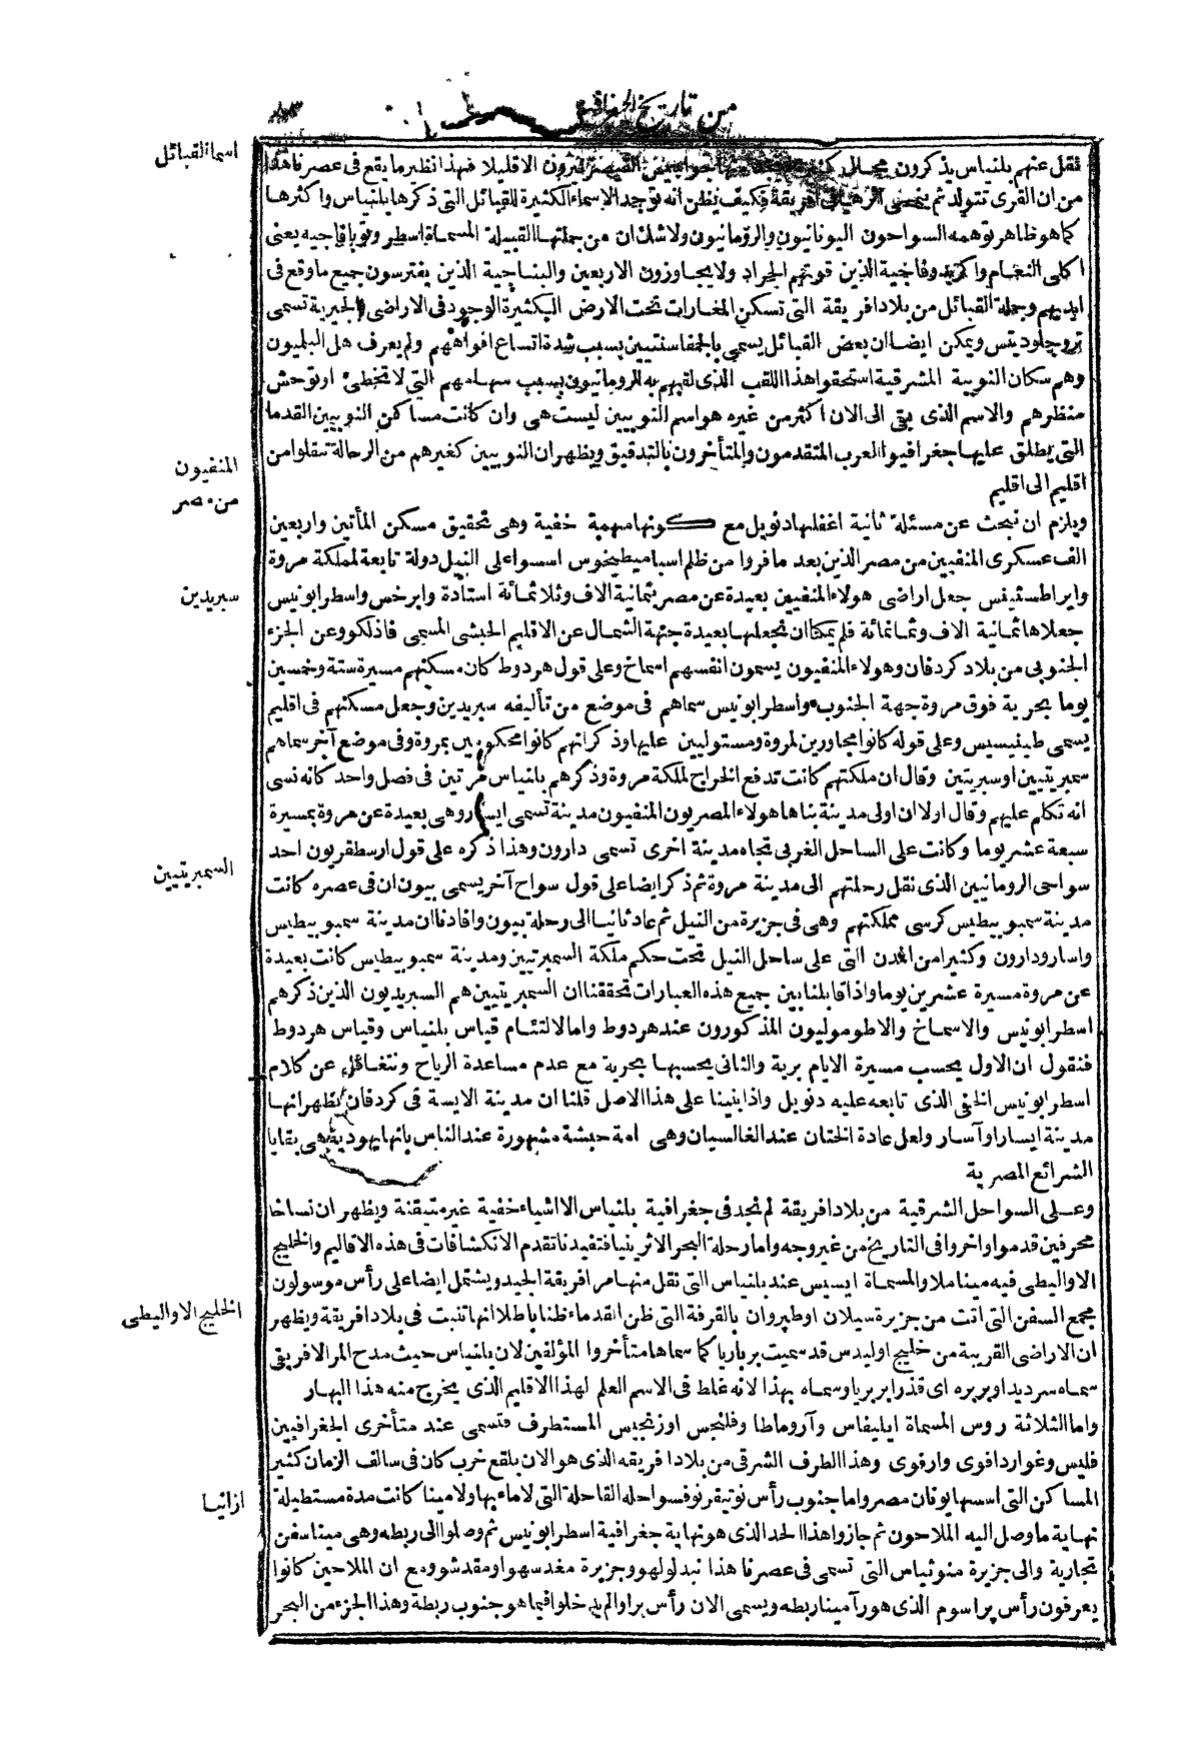 من تاريخ الجغرافية
٨٣
اسما القبائل
فنقل عنهم بلنياس يذكرون محال الاقليلا فهذا نظير ما يقع فى عصرنا هذا
من ان القرى تتولد ثم افريقة فكيف يظن انه توجد الاسماء الكثيرة للقبائل التى ذكرها بلنياس واكثرها
كما هو ظاهر توهمه السواحون اليونانيون والرومانيون ولا شك ان من جملتها القبيلة المسماة اسطر وتوباقاجيه يعنى
اكلى النعام واكريد وفاجية الذين قوتهم الجراد ولا يجاوزون الاربعين والبنباجية الذين يفترسون جميع ما وقع فى
ايديهم وجملة القبائل من بلاد افريقة التى تسكن المغارات تحت الارض الكثيرة الوجود فى الاراضى الجيرية تسمى
تروجلوديتس ويمكن ايضا ان بعض القبائل يسمى بالجمفاسنتيين بسبب شدة اتساع افواههم ولم يعرف هل البلميون
وهم سكان النوبية المشرقية استحقوا هذا اللقب الذى لقبهم به الرومانيون بسبب سهامهم التى لا تخطئ او توحش
منظرهم والاسم الذى بقى الى الان اكثر من غيره هو اسم النوبيين ليست هى وان كانت مساكن النوبيين القدما
التى يطلق عليها جغرافيوا العرب المتقدمون والمتأخرون بالتدقيق ويظهر ان النوبيين كغيرهم من الرحالة تنقلوا من
اقليم الى اقليم
المنفيون
من مصر
ويلزم ان نبحث عن مسئلة ثانية اغفلها دنويل مع كونها مهمة خفية وهى تحقيق مسكن المأتين واربعين
الف عسكرى المنفيين من مصر الذين بعد ما فروا من ظلم اسباميطيخوس اسسوا على النيل دولة تابعة لمملكة مروة
وايراطستينس جعل اراضى هولاء المنفيين بعيدة عن مصر بثمانية الاف وثلاثمائة استادة وابرخس واسطرابونيس
جعلاها ثمانية الاف وثمانمائة فلم يمكنا ان نجعلها بعيدة جهة الشمال عن الاقليم الحبشى المسمى فاذلكو وعن الجزء
الجنوبى من بلاد كردفان وهولاء المنفيون يسمون انفسهم اسماخ وعلى قول هردوط كان مسكنهم مسيرة ستة وخمسين
يوما بحرية فوق مروة جهة الجنوب واسطرابونيس سماهم فى موضع من تأليفه سبريدين وجعل مسكنهم فى اقليم
يسمى طينيسيس وعلى قوله كانوا مجاورين لمروة ومستوليين عليها وذكر انهم كانوا محكومين بمروة وفى موضع آخر سماهم
سمبريتيين اوسبريتين وقال ان ملكتهم كانت تدفع الخراج لملكة مروة وذكرهم بلنياس مرتين فى فصل واحد كانه نسى
انه تكلم عليهم وقال اولا ان اولى مدينة بناها هولاء المصريون المنفيون مدينة تسمى ايسارو هى بعيدة عن مروة بمسيرة
سبعة عشر يوما وكانت على الساحل الغربى تجاه مدينة اخرى تسمى دارون وهذا ذكره على قول ارسطقريون احد
سواحى الرومانيين الذى نقل رحلتهم الى مدينة مروة ثم ذكر ايضا على قول سواح آخر يسمى بيون ان فى عصره كانت
مدينة سمبو بيطيس كرسى مملكتهم وهى فى جزيرة من النيل ثم عاد ثانيا الى رحلة بيون وافادنا ان مدينة سمبو بيطيس
واسارو دارون وكثيرا من المدن التى على ساحل النيل تحت حكم ملكة السمبرتيين ومدينة سمبو بيطيس كانت بعيدة
عن مروة مسيرة عشرين يوما واذا قابلنا بين جميع هذه العبارات تحققنا ان السمبريتيين هم السبريديون الذين ذكرهم
اسطرابونيس والاسماخ والاطوموليون المذكورون عند هردوط واما لالتئام قياس بلنياس وقياس هردوط
فنقول ان الاول يحسب مسيرة الايام برية والثانى يحسبها بحرية مع عدم مساعدة الرياح ونتغافل عن كلام
اسطرابونيس الخفى الذى تابعه عليه دنويل واذا بنينا على هذا الاصل قلنا ان مدينة الايسة فى كردفان يظهر انها
مدينة ايسار او آسار ولعل عادة الختان عند الغالسيان وهى امة حبشة مشهورة عند الناس بانها يهودية هى بقايا
الشرائع المصرية
سبريدين
السمبريتيين
وعلى السواحل الشرقية من بلاد افريقة لم نجد فى جغرافية بلنياس الا اشياء خفية غير متيقنة ويظهر ان نساخا
محرفين قدموا واخروا فى التاريخ من غير وجه واما رحلة البحر الاثرينيا فتفيدنا تقدم الانكشافات فى هذه الاقاليم والخليج
الاواليطى فيه مينا ملاو المسماة ايسيس عند بلنياس التى نقل منها مر افريقة الجيد ويشتمل ايضا على رأس موسولون
مجمع السفن التى اتت من جزيرة سيلان اوطبروان بالقرفة التى ظن القدماء ظنا باطلا انها تنبت فى بلاد افريقة ويظهر
ان الاراضى القريبة من خليج اوليدس قد سميت برباريا كما سماها متأخروا المؤلفين لان بلنياس حيث مدح المر الافريقى
سماه سرديد اوبربره اى قذرا بربريا وسماه بهذا لانه غلط فى الاسم العلم لهذا الاقليم الذى يخرج منه هذا البهار
واما الثلاثة روس المسماة ايليفاس وآروماطا وفلنجس اوزنجبس المستطرف فتسمى عند متأخرى الجغرافيين
فليس وغواردافوى وارفوى وهذا الطرف الشرقى من بلاد افريقه الذى هو الان بلقع خرب كان فى سالف الزمان كثير
المساكن التى اسسها يونان مصر واما جنوب رأس نوتيقرنو فسواحله القاحلة التى لا ماء بها ولا مينا كانت مدة مستطيلة
نهاية ما وصل اليه الملاحون ثم جازوا هذا الحد الذى هو نهاية جغرافية اسطرابونيس ثم وصلوا الى ربطه وهى مينا سفن
تجارية والى جزيرة منوثياس التى تسمى فى عصرنا هذا نبدلولهوو جزيرة مغدسهو او مقدشو ومع ان الملاحين كانوا
يعرفون رأس پراسوم الذى هو رآ مينا ربطه ويسمى الان رأس براوالم يدخلوا فيما هو جنوب ربطة وهذا الجزء من البحر
الخليج الاواليطى
ازانيا